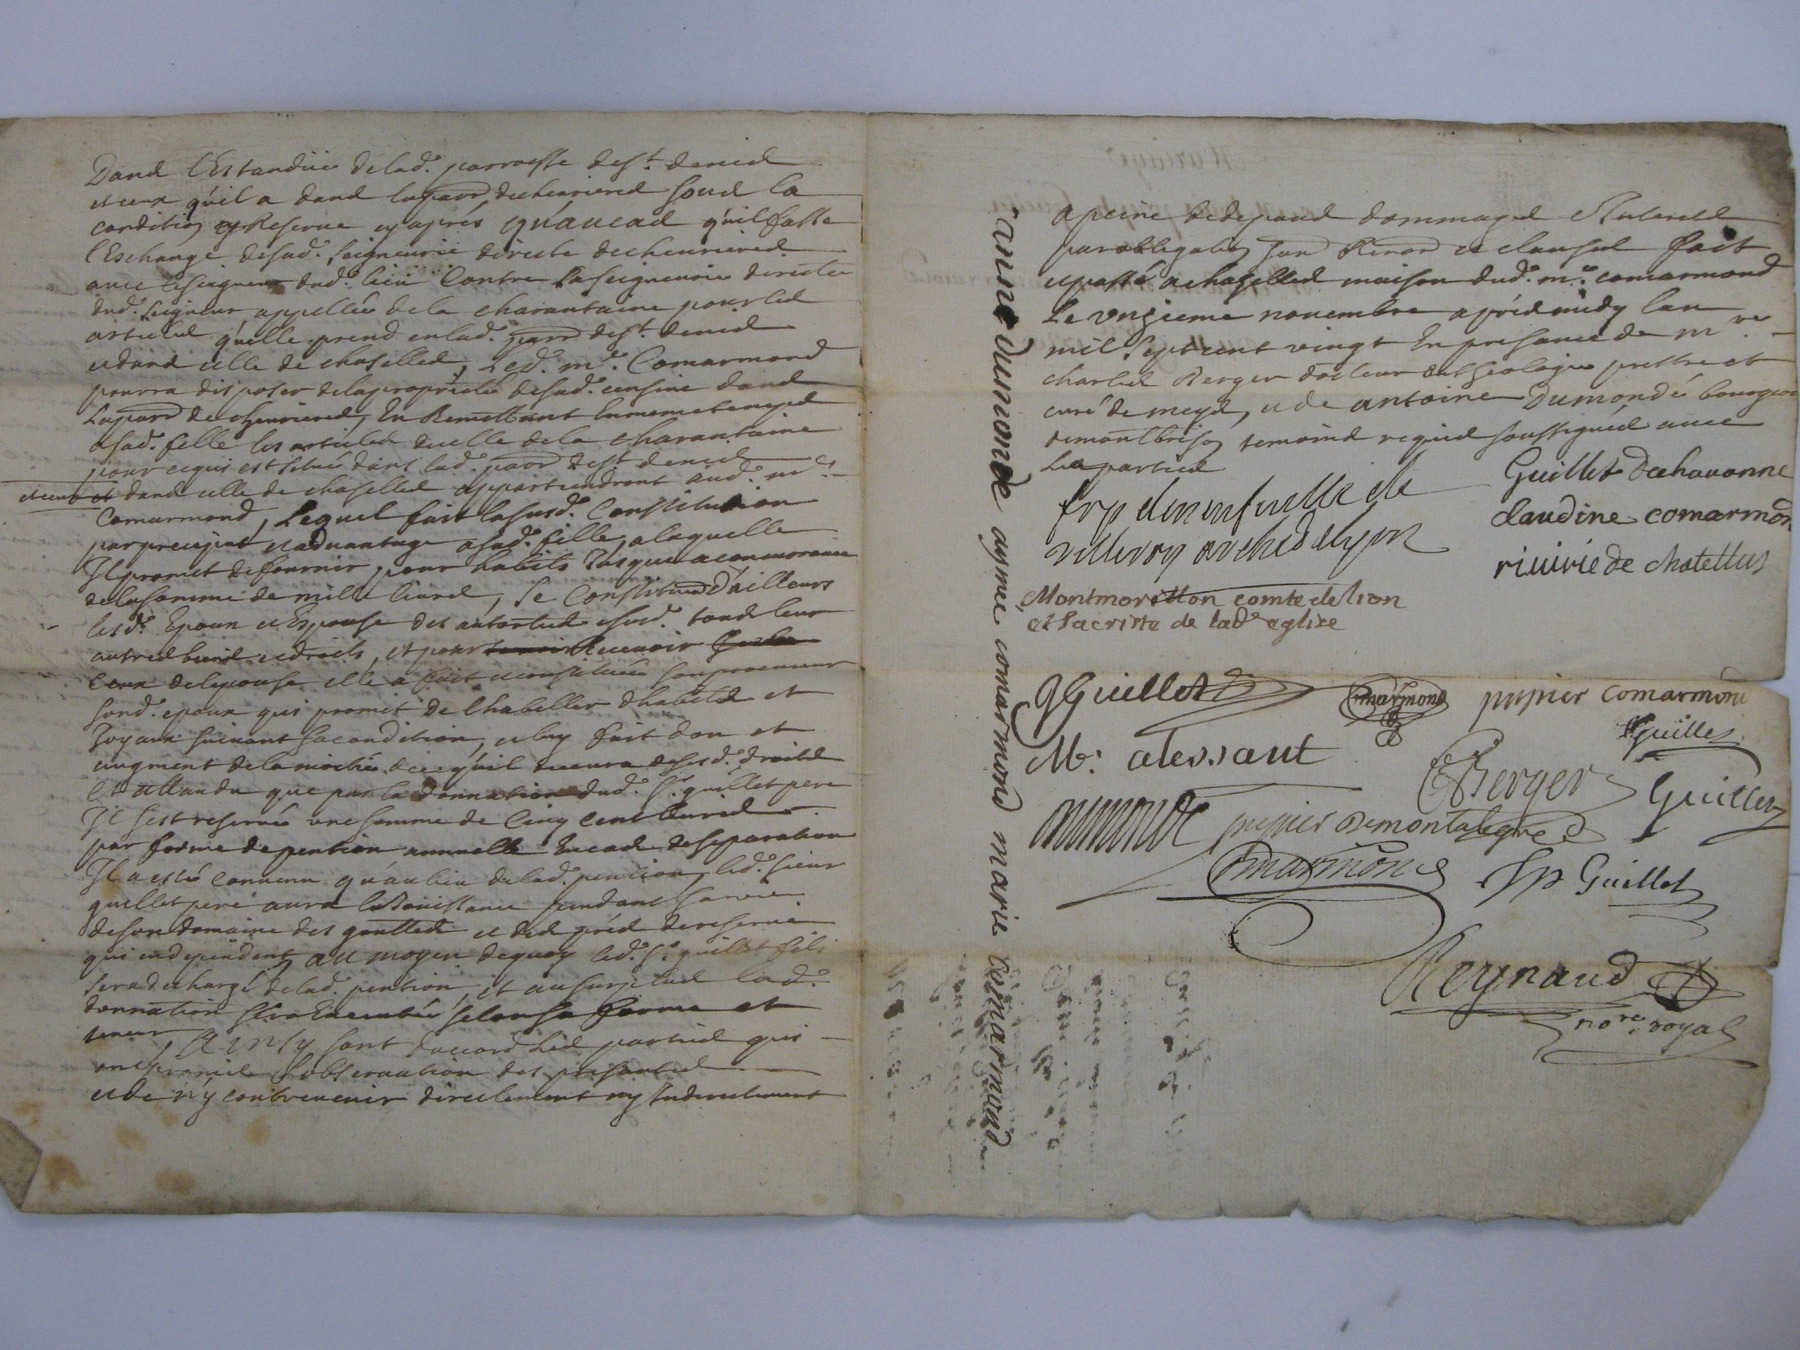 Dans l'Estandüe de lad.e parroesse de st. denis
et ceux qu'il a dans la parr. de chenrieres sous la
condition et Reserve cy après, qu'au cas qu'il fasse
l'Eschange de sad.e seigneurie directe de chenrieres
avec le seigneur dud. lieu Contre la seigneurie directe
dud. seigneur appellée de la charantaine pour les
articles qu'elle prend en lad.e parr. de st. denis
et dans celle de chaselles, Led. m.e Comarmond
pourra disposer de la proprieté de sad.e censive dans
La parr. de chenrieres, En Remettant en meme temps
a sad.e fille les articles de celle de la charantaine
pour ce qui est situé dans lad.e parr. de st. denis
et ceux dans celle de chaselles appartiendront aud. m.e
Comarmond, Lequel fait la susd.e Constitution
par preciput et advantage a sad.e fille, a laquelle
Il promet de fournir, pour habits Jusqu'a concurrance
de la somme de mille livres, se Constituant d'ailleurs
lesd. Epoux et Espouse des autorités susd. tous leurs
autres biens et droits, et pour Recevoir
Ceux de l'epouse elle a fait et constitué son procureur
sond. epoux qui promet de l'habiller d'habits et
Joyaux suivant sa condition, et luy fait don et
augment de la moitié de ce qu'il recevra de sesd. droits
Et attandu que par la donnation dud. Sr. guillet pere
Il s'est reservée une somme de Cinq cens livres
par forme de pention annuelle En cas de separation
Il a esté convenu qu'au lieu de lad.e pencion, led. sieur
guillet pere aura la Jouissance pendant sa vie
de son domaine des gouttes et des prés de reserve
qui en dependent, au moyen de quoy led. Sr. guillet fils
sera dechargé de lad.e pention, et au surplus lad.e
donnation sera Executée selon sa forme et
teneur, Ainsy sont d'accord Les parties qui
ont promis l'observation des presentes
et de n'y contrevenir directement ny Indirectement
a peine de tous depans dommages Interets
par obligation Renon et clauses fait
et passé a chaselles maison dud. m.e comarmond
Le onzieme novembre après midy l'an
mil sept cent vingt En presance de m.re
charles Berger docteur en theologie prettre et
curé de meys, et de antoine Dumondé bourgeois
de montbrison temoins requis soussignés avec
Les parties
frp de neufville de
villeroy archev de lyon
Guillet de chavanne
claudine comarmond
riuirie de chatellus
Montmorillon comte de lion
et sacriste de lad.e eglise
Guillet
Comarmond
papier comarmond
Guillet
M. alessant
C Berger
Guillet
Dumondé
papier de montalegre
Comarmond
Jp Guillet
Reynaud
no.re royal
anne dumonde aymée comarmond marie comarmond